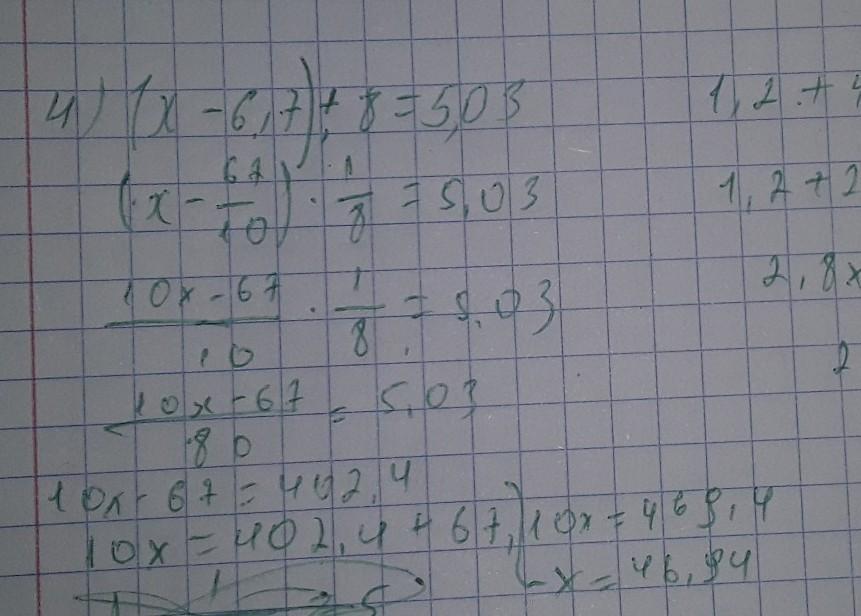 4) (x - 6,7) : 8 = 5,03
(x - 67/10) · 1/8 = 5,03
10x - 67/10 · 1/8 = 5,03
10x - 67/80 = 5,03
10x - 67 = 402,4
10x = 402,4 + 67,
10x = 469,4
x = 46,94
1,2 +
1,2 + 2
2,8x
2